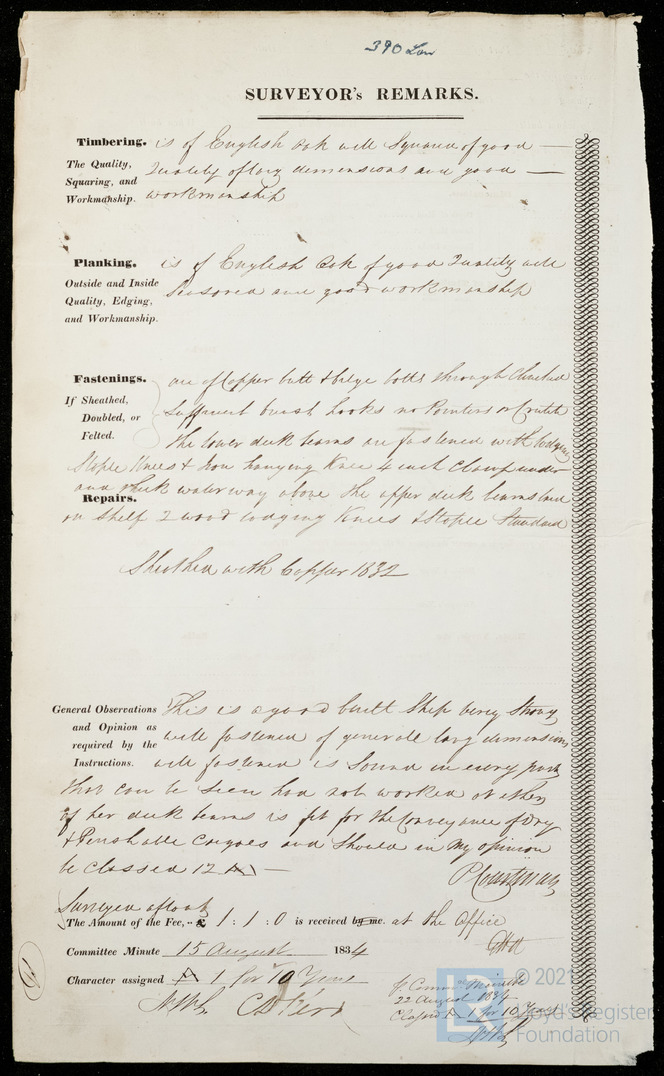 390 Lon
SURVEYOR's REMARKS.
Timbering. is of English Oak well Squared of good —
The Quality, Quality of larg demensions and good —
Squaring, and
Workmanship. workmanship
Planking. is of English Oak of good Quality well
Outside and Inside Seasoned and good workmanship
Quality, Edging,
and Workmanship.
Fastenings. are of Copper butt & bilge bolts through Clinched
If Sheathed, Sufficient breast hooks no Pointers or Crutch
Doubled, or
Felted. the lower deck beams are fastened with lodging
Staple Knees & Iron hanging Knee 4 inch Clamp under
and thick water way above the upper deck beams
Repairs.
on Shelf 2 wood lodging Knees & Staple Standard
Sheathed with Copper 1832
General Observations This is a good built Ship very Strong
and Opinion as well fastened of generale larg demensions
required by the
Instructions. well fastened is Sound in every part
that can be Seen had not worked at either
of her deck beams is fit for the Conveyance of Dry
& Perishable Cargoes and Should in my opinion
be Classed 12 A —
P Courtenay
Surveyed afloat
The Amount of the Fee, .. £ 1 : 1 : 0 is received by me. at the Office
Committee Minute 15 August 1834
Character assigned A 1 for 10 Years
22 August 1834
Classed A 1 for 10 Years
© 2021
Lloyd's Register
Foundation